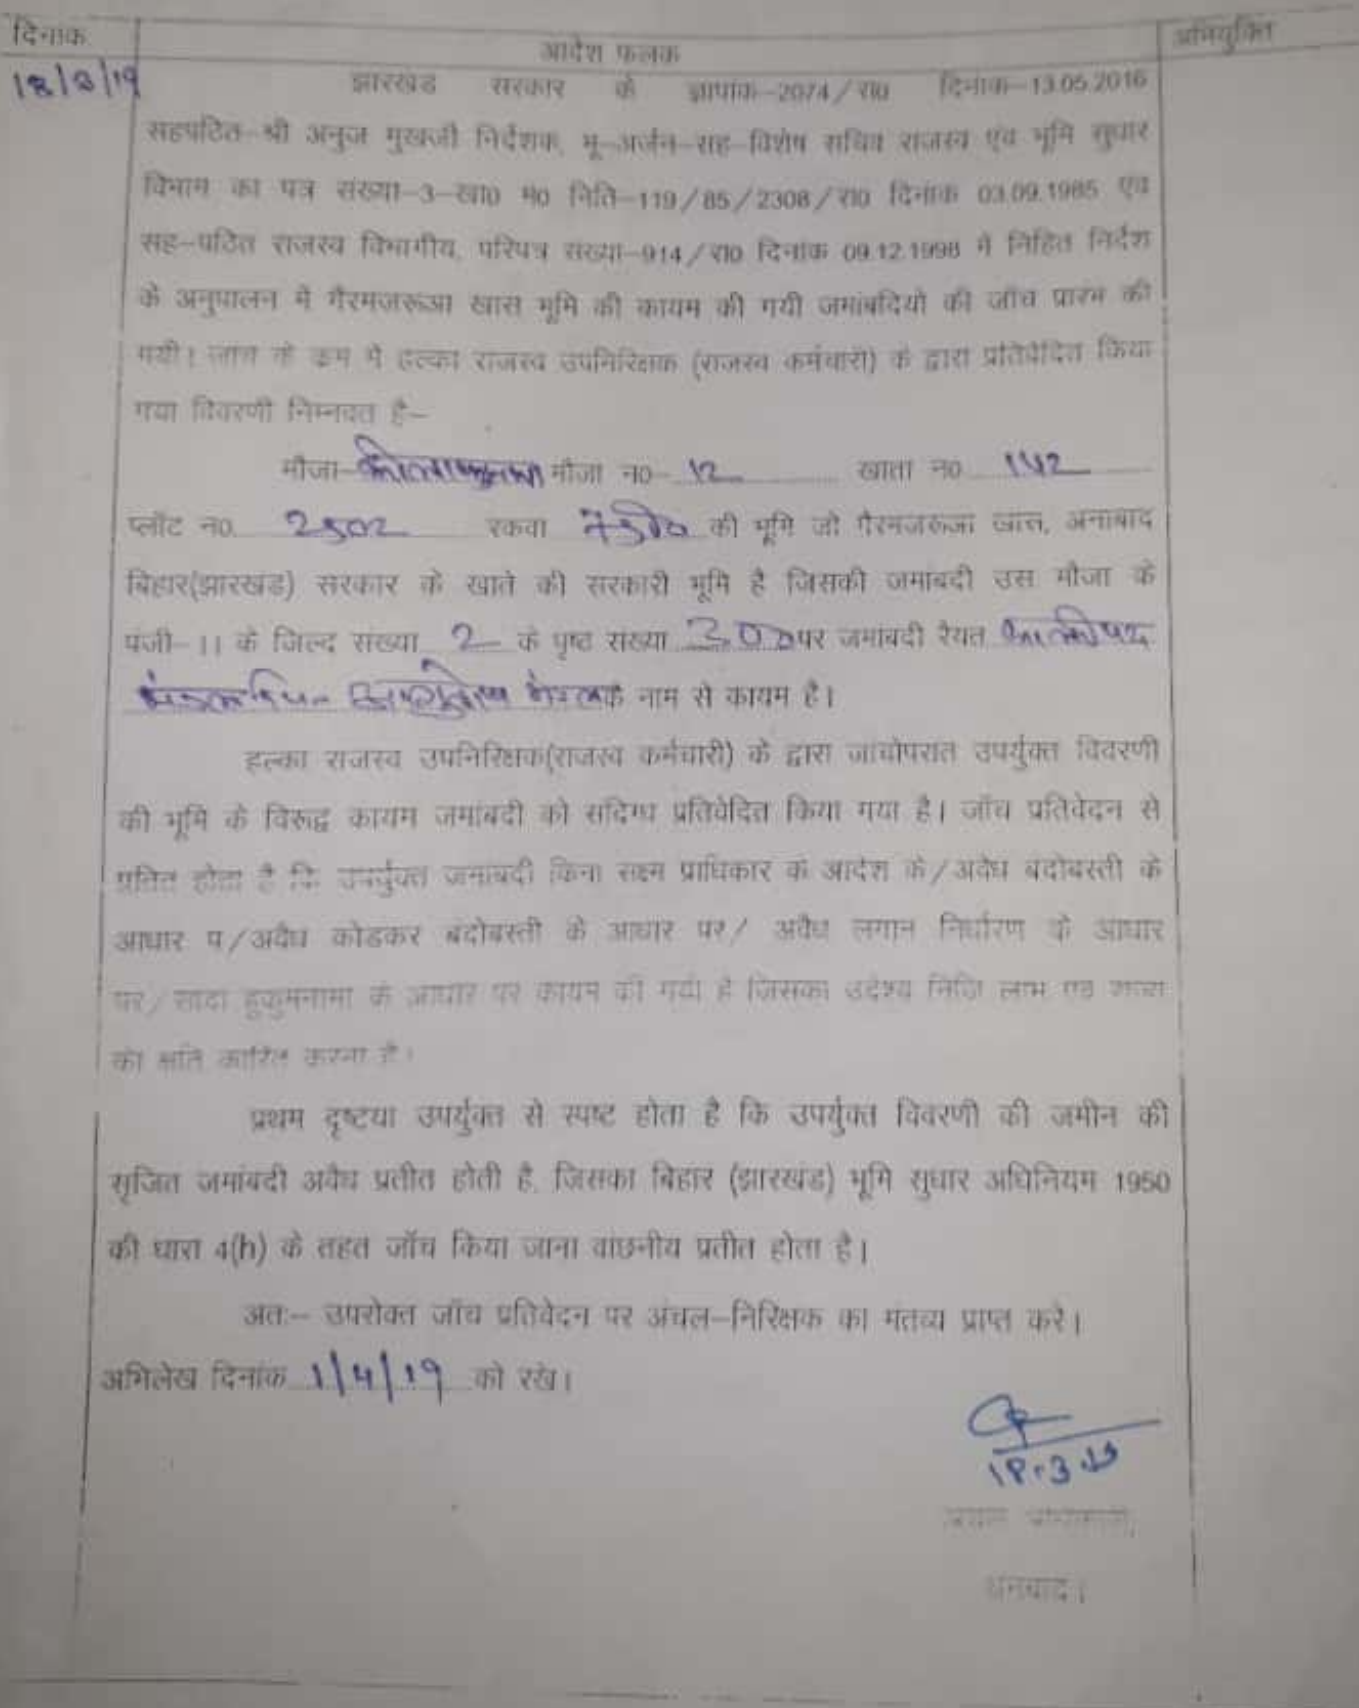 दिनांक
आदेश फलक
अभियुक्ति
18/3/19
झारखंड सरकार के ज्ञापांक-2074/रा0 दिनांक-13.05.2016
सहपठित-श्री अनुज मुखर्जी निर्देशक, भू-अर्जन-सह-विशेष सचिव राजस्व एवं भूमि सुधार
विभाग का पत्र संख्या-3-खा0 म0 निति-119/85/2308/रा0 दिनांक 03.09.1985 एवं
सह-पठित राजस्व विभागीय, परिपत्र संख्या-914/रा0 दिनांक 09.12.1998 में निहित निर्देश
के अनुपालन में गैरमजरूआ खास भूमि की कायम की गयी जमांबदियों की जॉच प्रारंभ की
गयी। जांच के क्रम में हल्का राजस्व उपनिरिक्षक (राजस्व कर्मचारी) के द्वारा प्रतिवेदित किया
गया विवरणी निम्नवत है-
मौजा- मौजा न0- 12 खाता न0 142
प्लॉट न0. 2502 रकवा की भूमि जो गैरमजरूआ खास, अनाबाद
बिहार(झारखंड) सरकार के खाते की सरकारी भूमि है जिसकी जमांबदी उस मौजा के
पंजी-11 के जिल्द संख्या 2 के पृष्ठ संख्या 300 पर जमांबदी रैयत कालीपद
मंडल के नाम से कायम है।
हल्का राजस्व उपनिरिक्षक(राजस्व कर्मचारी) के द्वारा जांचोपरांत उपर्युक्त विवरणी
की भूमि के विरूद्ध कायम जमांबदी को संदिग्ध प्रतिवेदित किया गया है। जॉच प्रतिवेदन से
प्रतित होता है कि उपर्युक्त जमांबदी बिना सक्ष्म प्राधिकार के आदेश के/अवैध बंदोबस्ती के
आधार प/अवैध कोडकर बंदोबस्ती के आधार पर/ अवैध लगान निर्धारण के आधार
पर/ सादा हुकुमनामा के आधार पर कायम की गयी है जिसका उदेश्य निजि लाभ एवं
को क्षति कारित करना है।
प्रथम दृष्टया उपर्युक्त से स्पष्ट होता है कि उपर्युक्त विवरणी की जमीन की
सृजित जमांबदी अवैध प्रतीत होती है, जिसका बिहार (झारखंड) भूमि सुधार अधिनियम 1950
की धारा 4(h) के तहत जॉच किया जाना वांछनीय प्रतीत होता है।
अतः- उपरोक्त जॉच प्रतिवेदन पर अंचल-निरिक्षक का मंतव्य प्राप्त करे।
अभिलेख दिनांक 1/4/19 को रखे।
18.3.19
अंचल अधिकारी,
धनबाद।